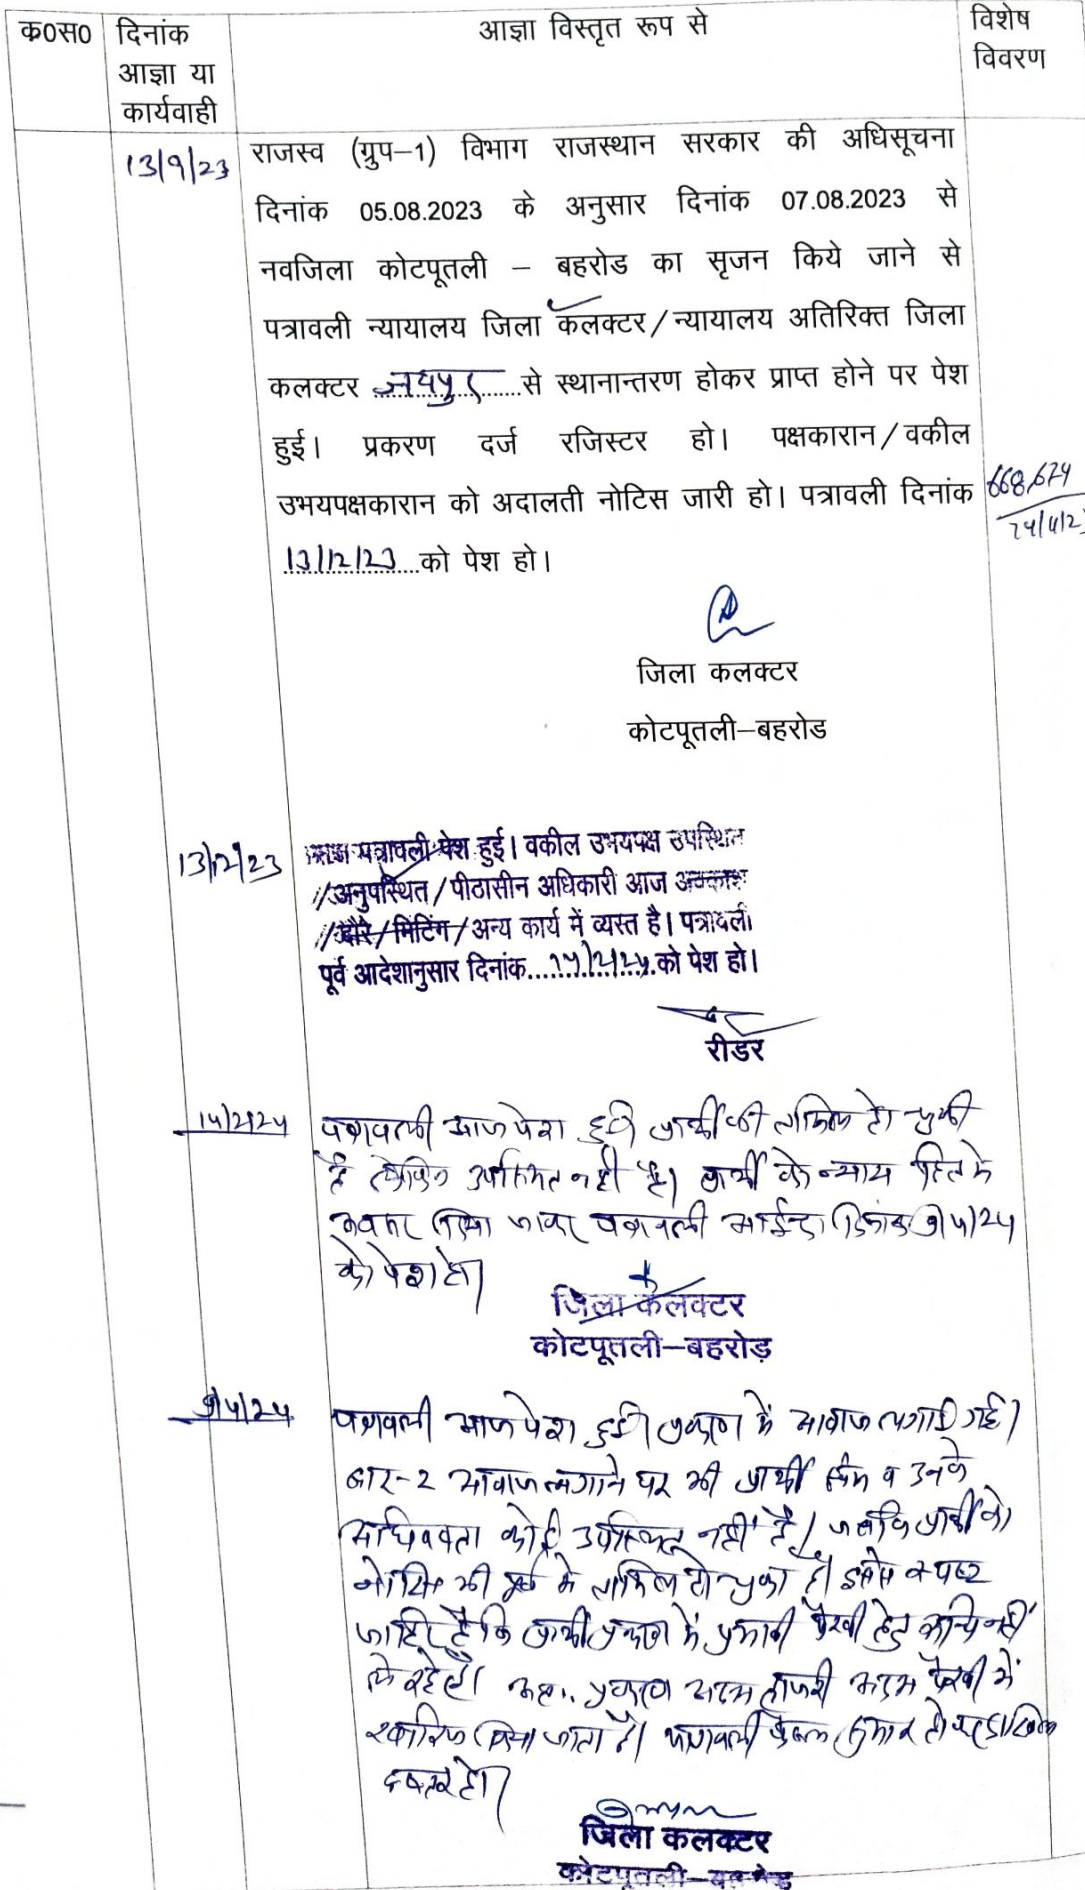 क०स० दिनांक आज्ञा या कार्यवाही आज्ञा विस्तृत रूप से विशेष विवरण
13/9/23 राजस्व (ग्रुप–1) विभाग राजस्थान सरकार की अधिसूचना
दिनांक 05.08.2023 के अनुसार दिनांक 07.08.2023 से
नवजिला कोटपूतली – बहरोड का सृजन किये जाने से
पत्रावली न्यायालय जिला कलक्टर/न्यायालय अतिरिक्त जिला
कलक्टर जयपुर से स्थानान्तरण होकर प्राप्त होने पर पेश
हुई। प्रकरण दर्ज रजिस्टर हो। पक्षकारान/वकील
उभयपक्षकारान को अदालती नोटिस जारी हो। पत्रावली दिनांक
13/12/23 को पेश हो।
जिला कलक्टर
कोटपूतली–बहरोड
13/12/23 पत्रावली पेश हुई। वकील उभयपक्ष उपस्थित
/अनुपस्थित/पीठासीन अधिकारी आज अवकाश
/दौरे/मिटिंग/अन्य कार्य में व्यस्त है। पत्रावली
पूर्व आदेशानुसार दिनांक को पेश हो।
रीडर
पत्रावली आज पेश हुई प्रार्थी की तामिल हो चुकी
है लेकिन उपस्थित नही है। प्रार्थी को न्याय हित मे
अवसर दिया जाकर पत्रावली आईन्दा दिनांक 9/4/24
को पेश हो।
जिला कलक्टर
कोटपूतली–बहरोड़
9/4/24 पत्रावली आज पेश हुई। प्रकरण में आवाज लगाई गई।
बार-२ आवाज लगाने पर भी प्रार्थी व उनके
अधिवक्ता कोई उपस्थित नहीं है। जबकि प्रार्थी को
नोटिस भी पूर्व मे तामिल हो चुका है। इससे स्पष्ट
जाहिर है कि प्रार्थी प्रकरण में प्रभावी पैरवी हेतु रूचि नहीं
ले रहे है। अतः प्रकरण अदम हाजरी अदम पैरवी में
खारिज किया जाता है। पत्रावली फैसल शुमार होकर दाखिल
दफ्तर हो।
जिला कलक्टर
कोटपूतली–बहरोड़